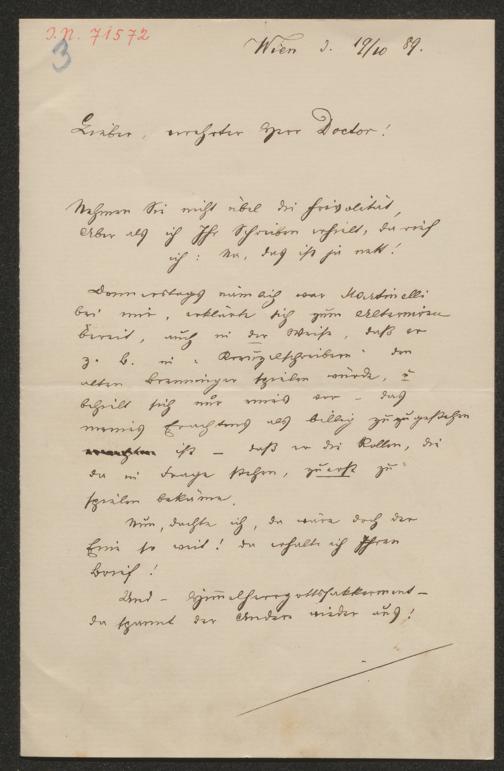 J.N. 71572
3
Wien d. 19/10 89.
Lieber, verehrter Herr Doctor!
Nehmen Sie nicht übel die Frivolität,
Aber als ich Ihr Schreiben erhielt, da rief
ich: Na, das ist ja nett!
Donnerstags nämlich war Martinelli
bei mir, erklärte sich zum Alterniren
bereit, auch in der Weise, daß er
z. B. in "Kreuzelschreibern" den
alten Brenninger spielen würde, u
behielt sich nur eines vor – das
meines Erachtens als billig zuzugestehen
ist – daß er die Rollen, die
da in Frage stehen, zuerst zu
spielen bekäme.
Nun, dachte ich, da wäre doch der
Eine so weit! da erhalte ich Ihren
Brief!
Und – Himmelherrgottsakkerment –
da spannt der Andere wieder aus!